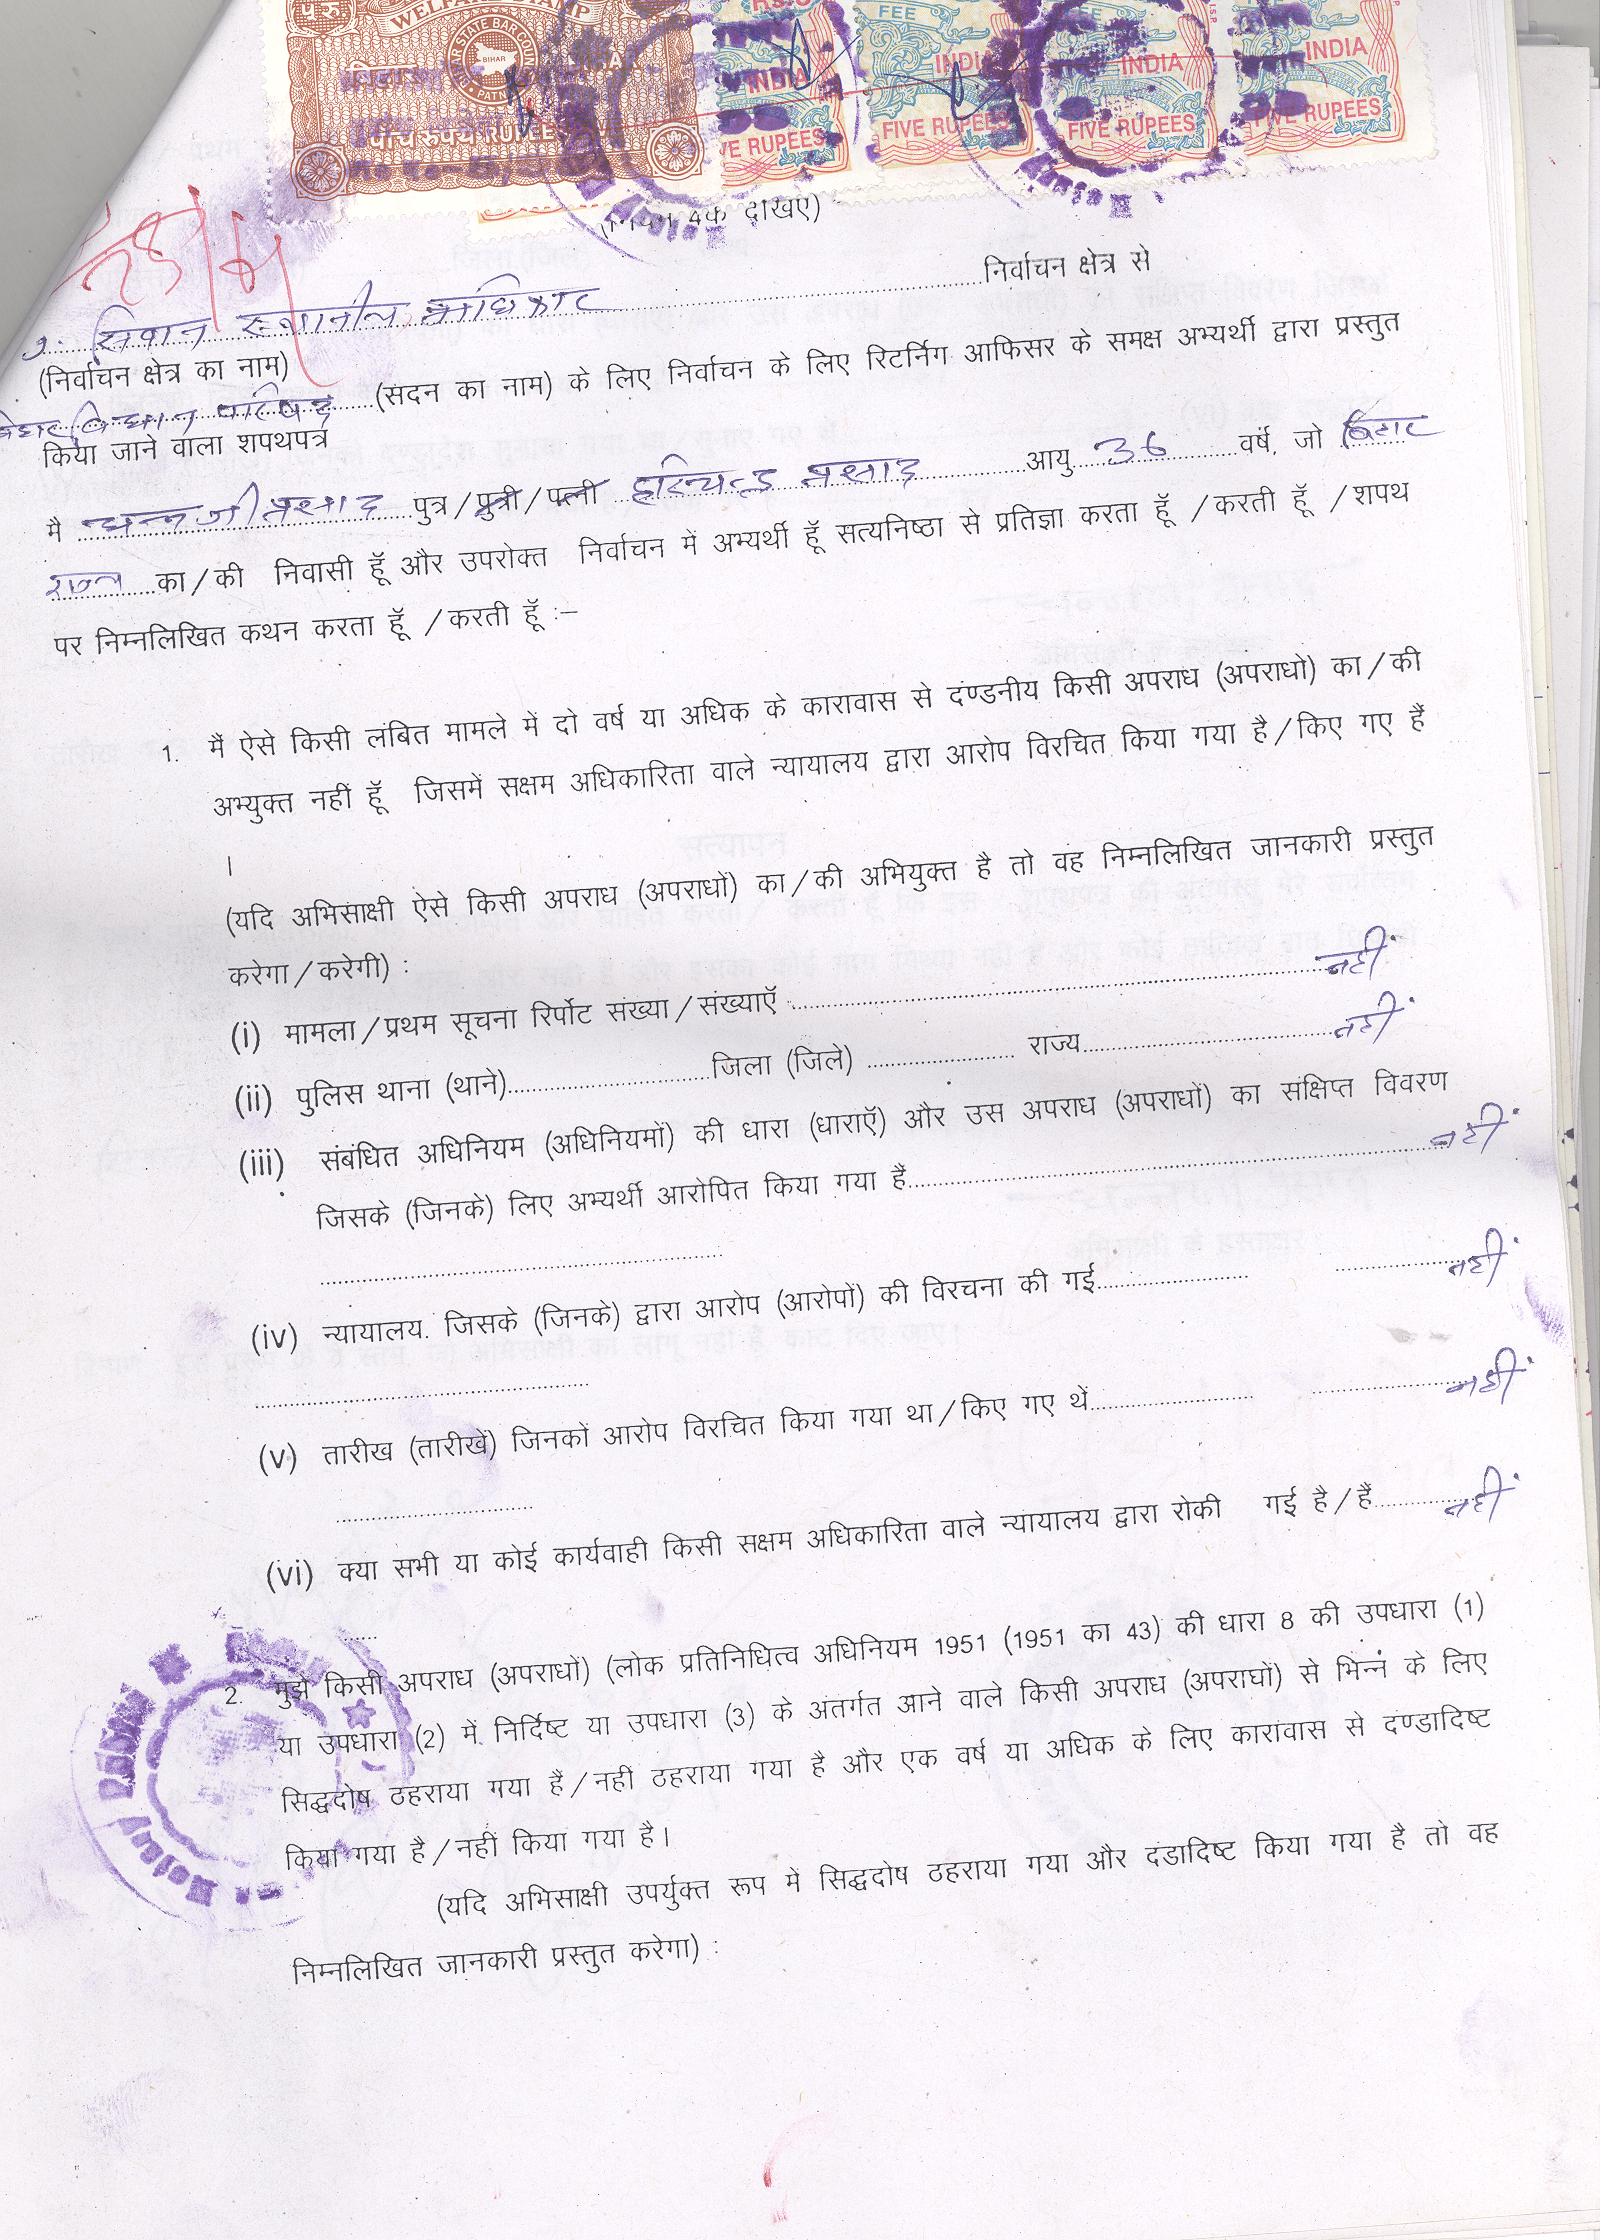 WELFARE STAMP
BIHAR STATE BAR COUN
BIHAR
PATN
पाँच रूपये RUPEE
INDIA
VE RUPEES
FEE
INDIA
FIVE RUPEES
INDIA
FIVE RUPEES
INDIA
FIVE RUPEES
4क देखिए)
सिवान स्थानीय प्राधिकार निर्वाचन क्षेत्र से
(निर्वाचन क्षेत्र का नाम)
बिहार विधान परिषद (सदन का नाम) के लिए निर्वाचन के लिए रिटर्निग आफिसर के समक्ष अभ्यर्थी द्वारा प्रस्तुत
किया जाने वाला शपथपत्र
मै धनजी प्रसाद पुत्र/पुत्री/पत्नी हरिचन्द्र प्रसाद आयु 36 वर्ष, जो बिहार
राज्य का/की निवासी हूँ और उपरोक्त निर्वाचन में अभ्यर्थी हूँ सत्यनिष्ठा से प्रतिज्ञा करता हूँ /करती हूँ /शपथ
पर निम्नलिखित कथन करता हूँ /करती हूँ :–
1. मैं ऐसे किसी लंबित मामले में दो वर्ष या अधिक के कारावास से दंण्डनीय किसी अपराध (अपराधो) का/की
अभ्युक्त नहीं हूँ जिसमें सक्षम अधिकारिता वाले न्यायालय द्वारा आरोप विरचित किया गया है/किए गए हैं
।
(यदि अभिसाक्षी ऐसे किसी अपराध (अपराधों) का/की अभियुक्त है तो वह निम्नलिखित जानकारी प्रस्तुत
करेगा/करेगी) :
(i) मामला/प्रथम सूचना रिर्पोट संख्या/संख्याएँ नहीं
(ii) पुलिस थाना (थाने) जिला (जिले) राज्य नहीं
(iii) संबंधित अधिनियम (अधिनियमों) की धारा (धाराएँ) और उस अपराध (अपराधों) का संक्षिप्त विवरण
जिसके (जिनके) लिए अभ्यर्थी आरोपित किया गया है नहीं
(iv) न्यायालय. जिसके (जिनके) द्वारा आरोप (आरोपों) की विरचना की गई नहीं
(v) तारीख (तारीखें) जिनकों आरोप विरचित किया गया था/किए गए थें नहीं
(vi) क्या सभी या कोई कार्यवाही किसी सक्षम अधिकारिता वाले न्यायालय द्वारा रोकी गई है/हैं नहीं
2. मुझे किसी अपराध (अपराधों) (लोक प्रतिनिधित्व अधिनियम 1951 (1951 का 43) की धारा 8 की उपधारा (1)
या उपधारा (2) में निर्दिष्ट या उपधारा (3) के अंतर्गत आने वाले किसी अपराध (अपराधों) से भिन्न के लिए
सिद्धदोष ठहराया गया है/नहीं ठहराया गया है और एक वर्ष या अधिक के लिए कारावास से दण्डादिष्ट
किया गया है/नहीं किया गया है।
(यदि अभिसाक्षी उपर्युक्त रूप में सिद्धदोष ठहराया गया और दंडादिष्ट किया गया है तो वह
निम्नलिखित जानकारी प्रस्तुत करेगा) :